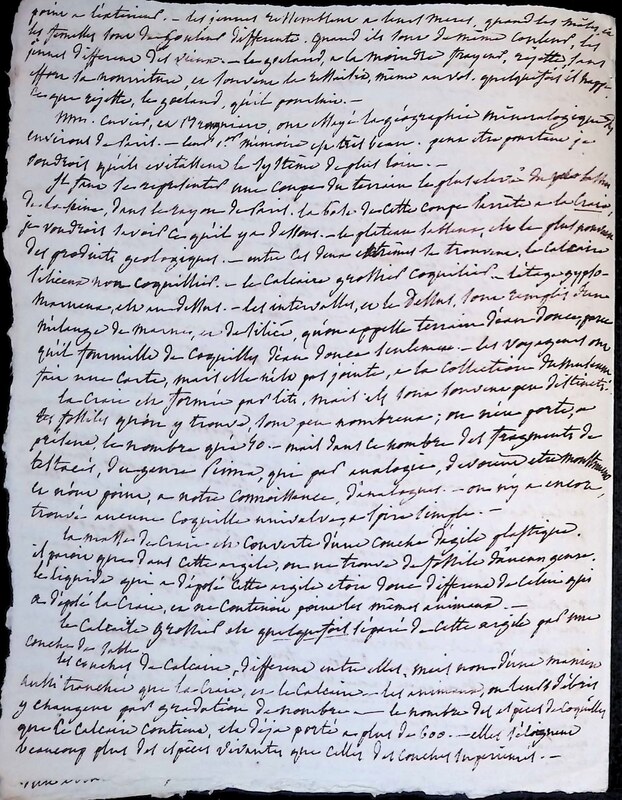 point a l'extérieur. — les jeunes ressemblent a leurs meres, quand les mâles, et
les femelles sont de couleur differente. quand ils sont de même couleur, les
jeunes different des vieux. — le goeland, a la moindre frayeur, rejette, sans
effort sa nourriture et souvent la ressaisit, même au vol. quelquefois il
ce que rejette, le goeland, qu'il poursuit. —
MM. Cuvier, et Brongniart, ont la géographie mineralogique des
environs de Paris. — leur 1er mémoire est très beau. peut etre pourtant je
voudrois qu'ils evitassent le système de plus loin. —
Il faut se representer une coupe du terrain le plus elevé du
de la Seine, dans le rayon de Paris. la base de cette coupe s'arrête a la Craie,
je voudrois savoir ce qu'il y a dessous. — le plateau sableux, est le plus nouveau
des produits geologiques. — entre ces deux extrêmes se trouvent, le calcaire
siliceux non coquillier. — le calcaire grossier coquillier — l'étage gypso-
marneux, est au dessus. — les intervalles, et le dessus, sont remplis d'un
mélange de marne, et de silice, qu'on appelle terrain d'eau douce, parce
qu'il fourmille de coquilles d'eau douce seulement. — les voyageurs ont
fait une carte, mais elle n'est pas jointe, a la collection du museum
la Craie est formée par lits, mais ils sont souvent peu distincts.
les fossiles qu'on y trouve, sont peu nombreux; on n'en porte, a
present, le nombre qu'a 50. — mais dans ce nombre des fragments de
testacés, du genre Pinna, qui par analogie, devoient etre monstrueux
et n'ont point, a notre connoissance, d'analogues. — on n'y a encore,
trouvé aucune coquille univalve, a spire simple. —
la masse de Craie est couverte d'une couche d'argile plastique.
il paroit que dans cette argile, on ne trouve de fossile d'aucun genre.
le liquide qui a déposé cette argile etoit donc different de celui qui
a déposé la Craie, et ne contenoit point les mêmes animaux. —
le calcaire grossier est quelquefois séparé de cette argile par une
couche de sable.
les couches de calcaire, different entre elles, mais non d'une maniere
aussi tranchée que la Craie, et le Calcaire. — les animaux, ou leurs débris
y changent par gradation de nombre — le nombre des espèces de coquilles
que le calcaire contient, est déjà porté a plus de 600. — elles s'éloignent
beaucoup plus des espèces vivantes que celles des couches superieures. —